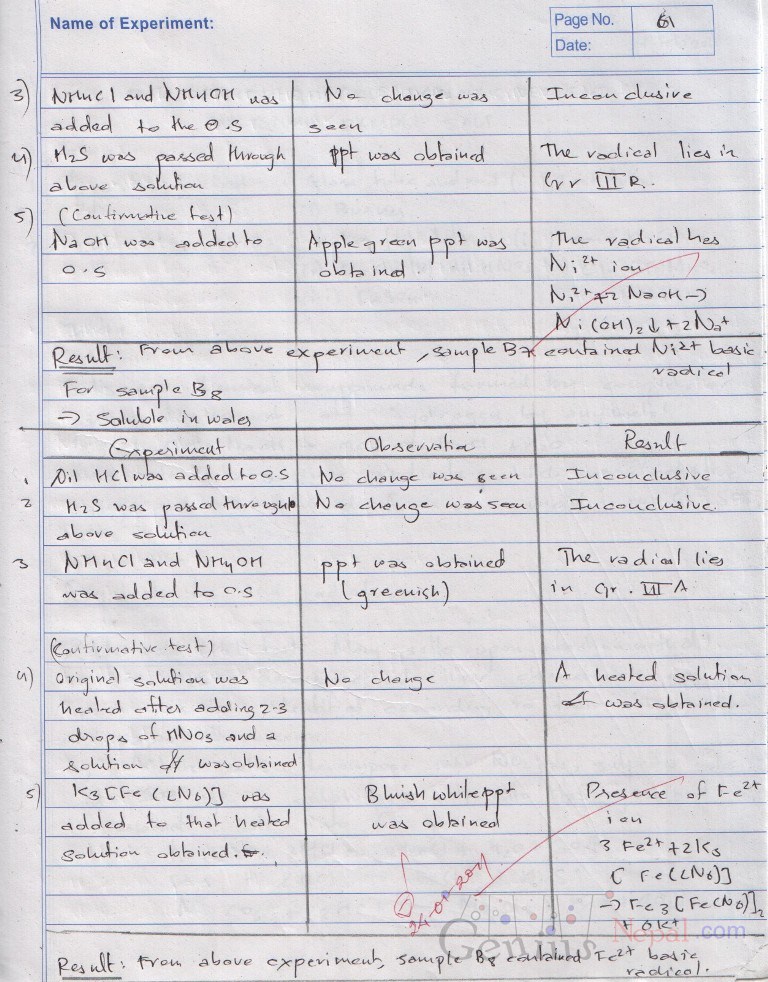 Name of Experiment:
Page No. 61
Date:
3) NH4Cl and NH4OH was
added to the O.S
No change was
seen
Inconclusive
4) H2S was passed through
above solution
ppt was obtained
The radical lies in
Gr III B.
5) (Confirmative test)
NaOH was added to
O.S
Apple green ppt was
obtained
The radical has
Ni2+ ion
Ni2+ + 2 NaOH →
Ni(OH)2 ↓ + 2Na+
Result: From above experiment, sample contained Ni2+ basic
radical
For sample B8
→ Soluble in water
Experiment
Observation
Result
1 Dil HCl was added to O.S
No change was seen
Inconclusive
2 H2S was passed through
above solution
No change was seen
Inconclusive.
3 NH4Cl and NH4OH
was added to O.S
ppt was obtained
(greenish)
The radical lies
in Gr. III A
(Confirmative test)
4) Original solution was
heated after adding 2-3
drops of HNO3 and a
solution was obtained
No change
A heated solution
was obtained.
5) K3[Fe(CN6)] was
added to that heated
solution obtained.
Bluish white ppt
was obtained
Presence of Fe2+
ion
3 Fe2+ + 2K3
[Fe(CN6)]
→ Fe3[Fe(CN6)]2
+ 6K+
24-01-2011
Genius Nepal.com
Result: From above experiment, sample B8 contained Fe2+ basic
radical.